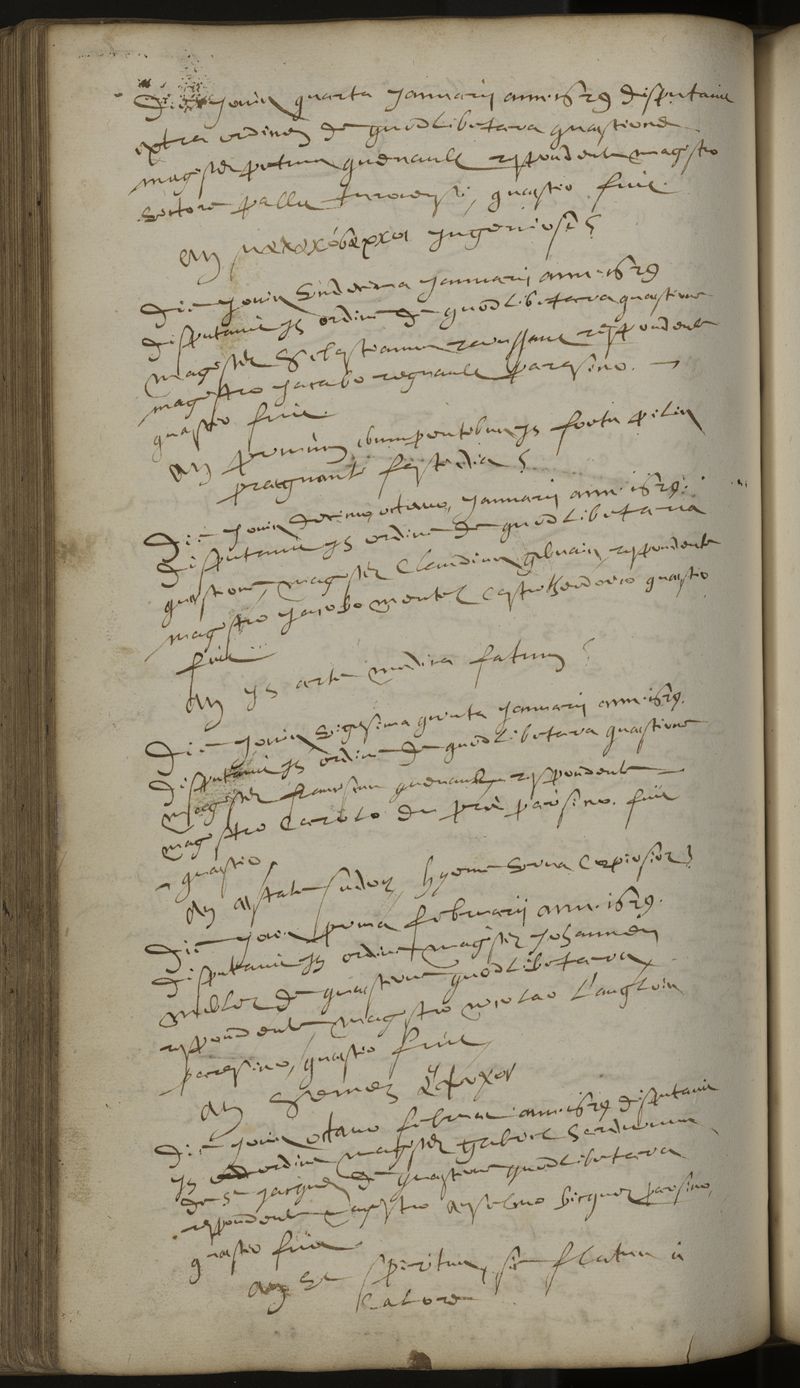 Die Jovis quarta Januarii anni 1629 disputavit
extra ordinem de quodlibetaria quaestione
magister petrus guenault respondente magistro
pallu turonensi, quaestio fuit.
An μελαγχολικοι ingeniosi?
Die Jovis undecima Januarii anni 1629
disputavit ex ordine de quodlibetaria quaestione
magister Sebastianus respondente
magistro Jacobo regnault parisino.
quaestio fuit.
An ex foetu pilis
praegnanti fastidia?
Die Jovis decimo octavo, Januarii anni 1629.
disputavit ex ordine de quodlibetaria
quaestione, magister Claudius gervais, respondente
magistro Jacobo mentel castrotheodorico quaestio
fuit
An ex arte medica fatum?
Die Jovis vigesima quinta Januarii anni 1629.
disputavit ex ordine de quodlibetaria quaestione
magister franciscus guenault respondente
magistro Carolo du pré parisino. fuit
quaestio,
An aestate sudor, hyeme urina copiosior?
Die Jovis prima februarii anni 1629.
disputavit ex ordine magister Johannes
merlet de quaestione quodlibetaria
respondente, magistro nicolao Langlois
parisino, quaestio fuit,
An semen
Die Jovis octavo februarii anni 1629 disputavit
ex ordine magister gabriel
de quaestione quodlibetaria
respondente magistro anselmo bicquet parisino,
quaestio fuit.
An ut spiritus, sic flatus à
calore